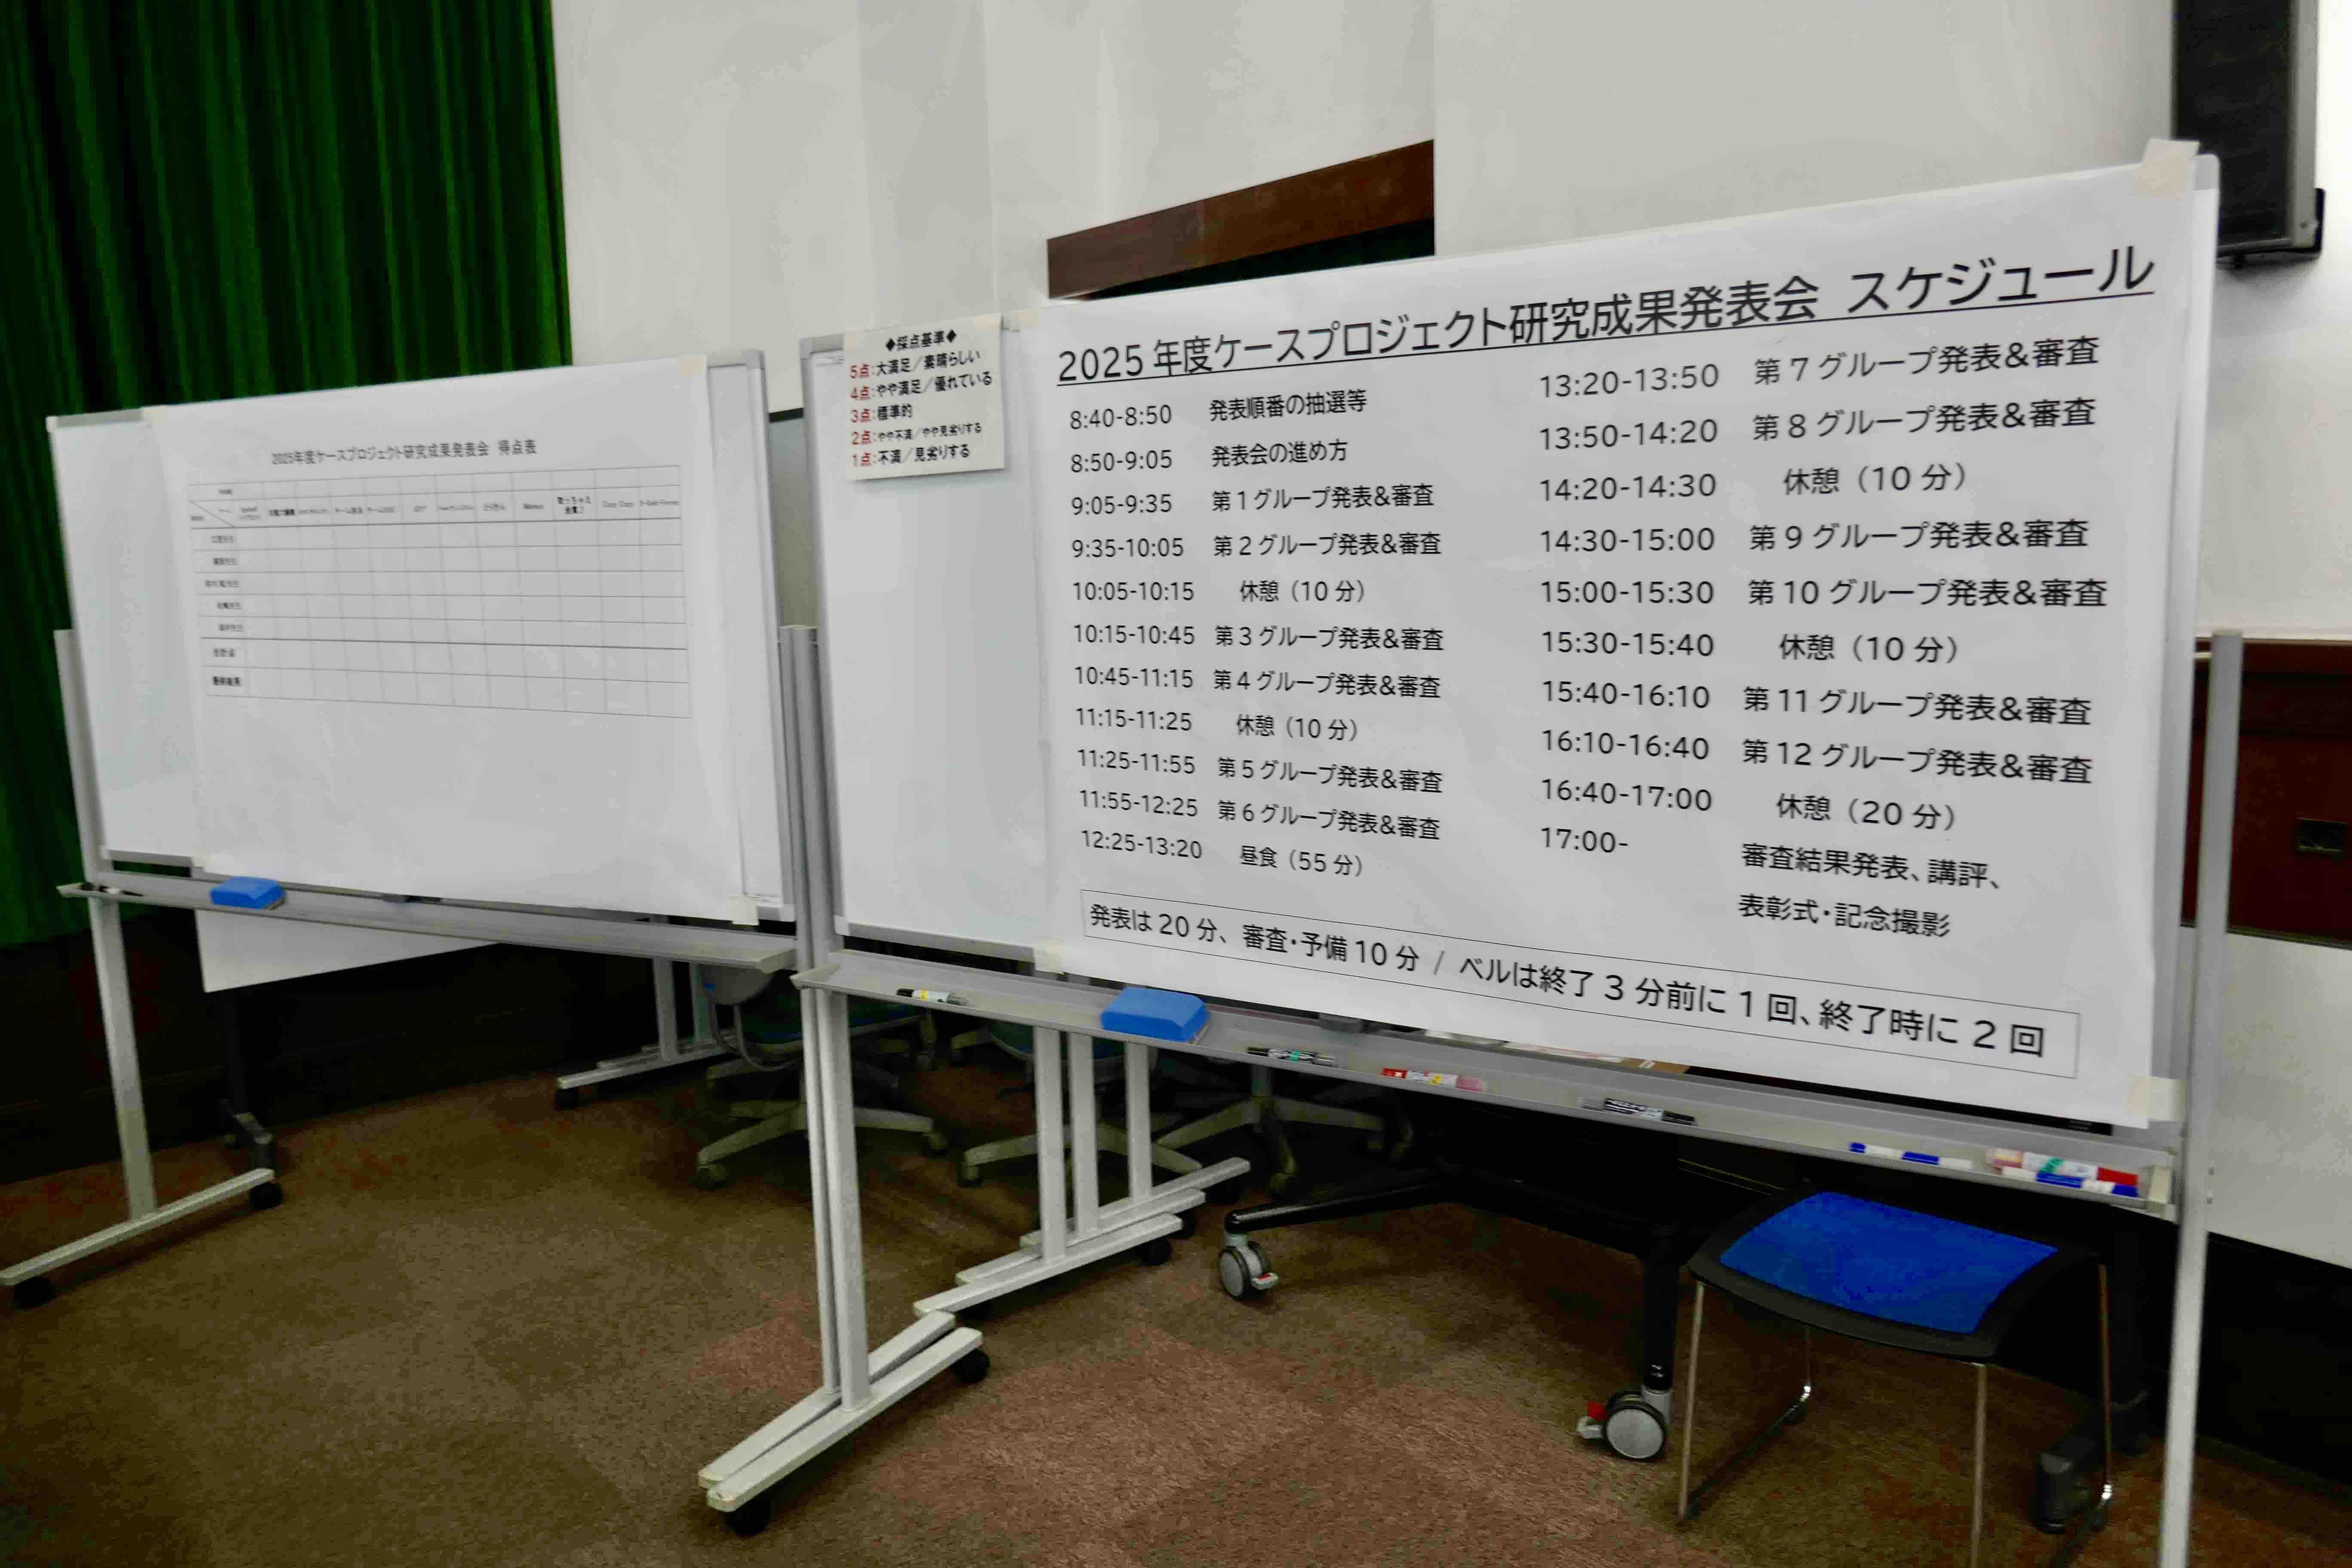 2025年度ケースプロジェクト研究成果発表会 得点表
チーム
合計値
最終結果
◆採点基準◆
5点:大満足/素晴らしい
4点:やや満足/優れている
3点:標準的
2点:やや不満/やや見劣りする
1点:不満/見劣りする
2025年度ケースプロジェクト研究成果発表会 スケジュール
8:40-8:50 発表順番の抽選等
8:50-9:05 発表会の進め方
9:05-9:35 第1グループ発表&審査
9:35-10:05 第2グループ発表&審査
10:05-10:15 休憩(10分)
10:15-10:45 第3グループ発表&審査
10:45-11:15 第4グループ発表&審査
11:15-11:25 休憩(10分)
11:25-11:55 第5グループ発表&審査
11:55-12:25 第6グループ発表&審査
12:25-13:20 昼食(55分)
13:20-13:50 第7グループ発表&審査
13:50-14:20 第8グループ発表&審査
14:20-14:30 休憩(10分)
14:30-15:00 第9グループ発表&審査
15:00-15:30 第10グループ発表&審査
15:30-15:40 休憩(10分)
15:40-16:10 第11グループ発表&審査
16:10-16:40 第12グループ発表&審査
16:40-17:00 休憩(20分)
17:00- 審査結果発表、講評、
表彰式・記念撮影
発表は20分、審査・予備10分 / ベルは終了3分前に1回、終了時に2回